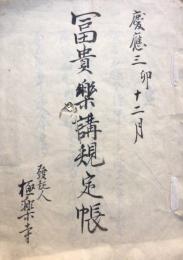 慶應三卯十二月
冨貴樂講規定帳
發起人
極樂寺